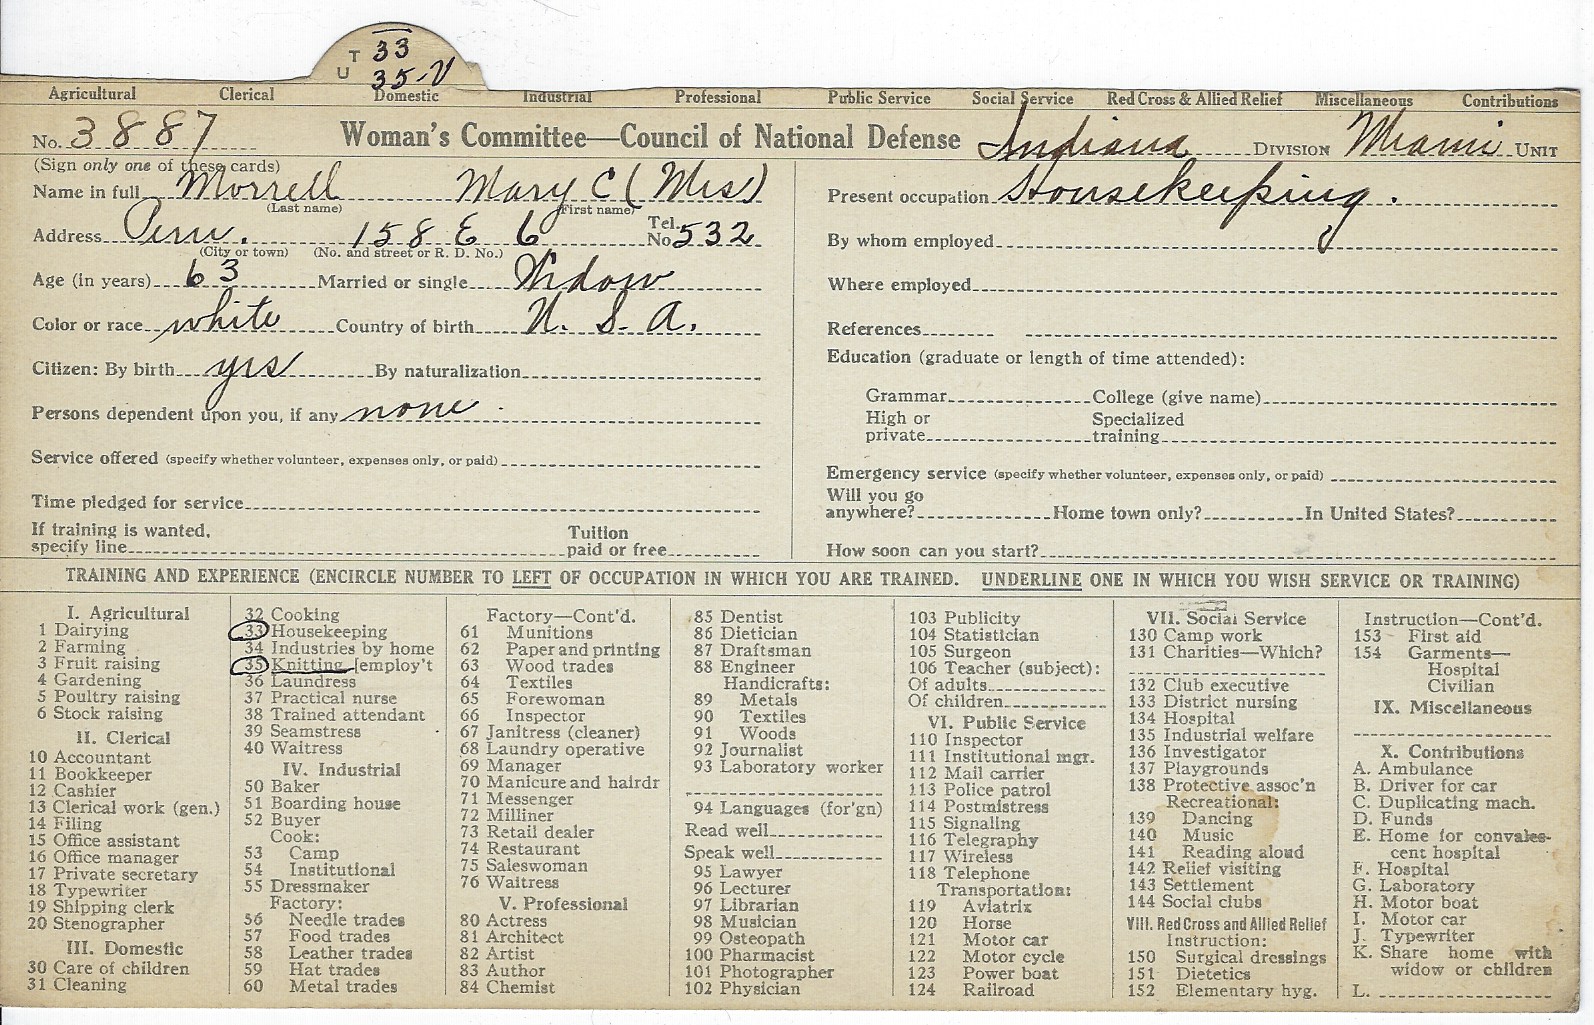 T 33
U 35-V
Agricultural Clerical Domestic Industrial Professional Public Service Social Service Red Cross & Allied Relief Miscellaneous Contributions
No. 3887 Woman's Committee—Council of National Defense Indiana DIVISION Miami UNIT
(Sign only one of these cards)
Name in full Morrell Mary C (Mrs)
(Last name) (First name)
Address Peru. 158 E 6 Tel. No 532
(City or town) (No. and street or R. D. No.)
Age (in years) 63 Married or single Widow
Color or race white Country of birth U. S. A.
Citizen: By birth yrs By naturalization
Persons dependent upon you, if any none.
Service offered (specify whether volunteer, expenses only, or paid)
Time pledged for service
If training is wanted, specify line Tuition paid or free
Present occupation Housekeeping.
By whom employed
Where employed
References
Education (graduate or length of time attended):
Grammar College (give name)
High or private Specialized training
Emergency service (specify whether volunteer, expenses only, or paid)
Will you go anywhere? Home town only? In United States?
How soon can you start?
TRAINING AND EXPERIENCE (ENCIRCLE NUMBER TO LEFT OF OCCUPATION IN WHICH YOU ARE TRAINED. UNDERLINE ONE IN WHICH YOU WISH SERVICE OR TRAINING)
I. Agricultural
1 Dairying
2 Farming
3 Fruit raising
4 Gardening
5 Poultry raising
6 Stock raising
II. Clerical
10 Accountant
11 Bookkeeper
12 Cashier
13 Clerical work (gen.)
14 Filing
15 Office assistant
16 Office manager
17 Private secretary
18 Typewriter
19 Shipping clerk
20 Stenographer
III. Domestic
30 Care of children
31 Cleaning
32 Cooking
33 Housekeeping
34 Industries by home
35 Knitting [employ't
36 Laundress
37 Practical nurse
38 Trained attendant
39 Seamstress
40 Waitress
IV. Industrial
50 Baker
51 Boarding house
52 Buyer
Cook:
53 Camp
54 Institutional
55 Dressmaker
Factory:
56 Needle trades
57 Food trades
58 Leather trades
59 Hat trades
60 Metal trades
Factory—Cont'd.
61 Munitions
62 Paper and printing
63 Wood trades
64 Textiles
65 Forewoman
66 Inspector
67 Janitress (cleaner)
68 Laundry operative
69 Manager
70 Manicure and hairdr
71 Messenger
72 Milliner
73 Retail dealer
74 Restaurant
75 Saleswoman
76 Waitress
V. Professional
80 Actress
81 Architect
82 Artist
83 Author
84 Chemist
85 Dentist
86 Dietician
87 Draftsman
88 Engineer
Handicrafts:
89 Metals
90 Textiles
91 Woods
92 Journalist
93 Laboratory worker
94 Languages (for'gn)
Read well
Speak well
95 Lawyer
96 Lecturer
97 Librarian
98 Musician
99 Osteopath
100 Pharmacist
101 Photographer
102 Physician
103 Publicity
104 Statistician
105 Surgeon
106 Teacher (subject):
Of adults
Of children
VI. Public Service
110 Inspector
111 Institutional mgr.
112 Mail carrier
113 Police patrol
114 Postmistress
115 Signaling
116 Telegraphy
117 Wireless
118 Telephone
Transportation:
119 Aviatrix
120 Horse
121 Motor car
122 Motor cycle
123 Power boat
124 Railroad
VII. Social Service
130 Camp work
131 Charities—Which?
132 Club executive
133 District nursing
134 Hospital
135 Industrial welfare
136 Investigator
137 Playgrounds
138 Protective assoc'n
Recreational:
139 Dancing
140 Music
141 Reading aloud
142 Relief visiting
143 Settlement
144 Social clubs
VIII. Red Cross and Allied Relief
Instruction:
150 Surgical dressings
151 Dietetics
152 Elementary hyg.
Instruction—Cont'd.
153 First aid
154 Garments—
Hospital
Civilian
IX. Miscellaneous
X. Contributions
A. Ambulance
B. Driver for car
C. Duplicating mach.
D. Funds
E. Home for convales-
cent hospital
F. Hospital
G. Laboratory
H. Motor boat
I. Motor car
J. Typewriter
K. Share home with
widow or children
L.